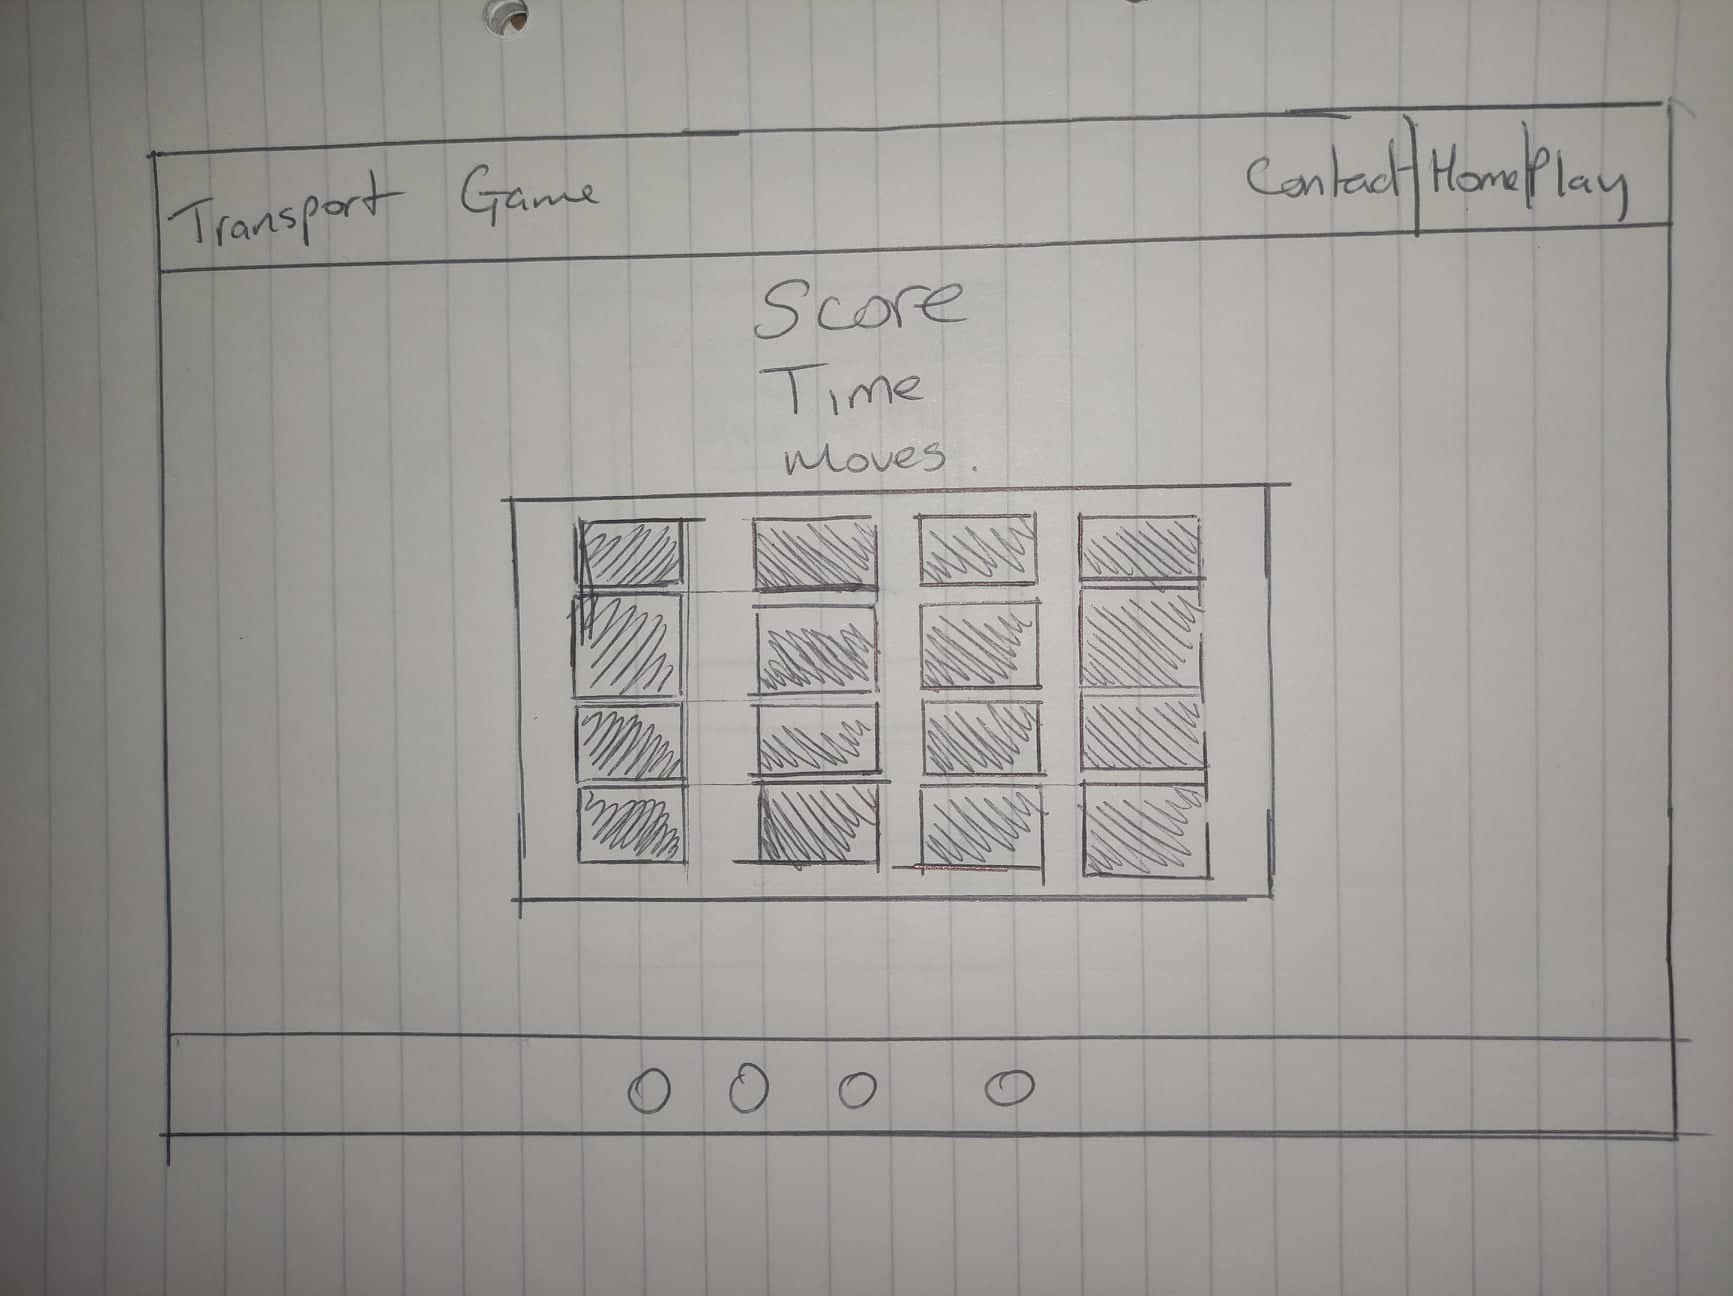 Transport Game
Contact Home Play
Score
Time
Moves.